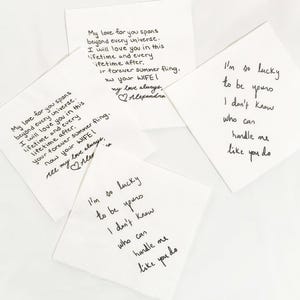 My love for you spans
beyond every universe.
I will love you in this
lifetime and every
lifetime after.
forever summer fling,
your WIFE!
my love always,
Alexandra
I'm so lucky
to be yours
I don't know
who can
handle me
like you do
My love for you spans
beyond every universe
I will love you in this
lifetime and every
lifetime after.
your forever summer
now your WIFE!
All my love always,
I'm so lucky
to be yours
I don't know
who can
handle me
like you do